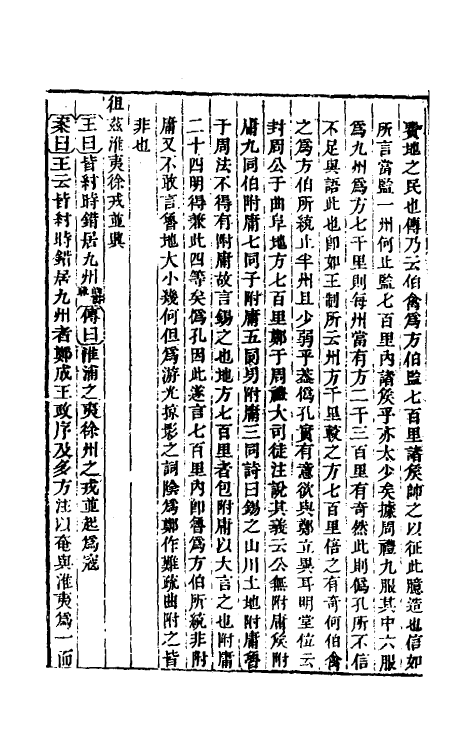 費地之民也傳乃云伯禽為方伯監七百里諸矦帥之以征此臆造也信如
所言當監一州何止監七百里內諸矦乎亦太少矣據周禮九服其中六服
為九州為方七千里則每州當有方二千三百里有奇然此則偽孔所不信
不足與語此也卽如王制所云州方千里較之方七百里倍之有奇何伯禽
之為方伯所統止半州且少弱乎葢偽孔實有意欲與鄭立異耳明堂位云
封周公于曲阜地方七百里鄭于周禮大司徒注說其義云公無附庸矦附
庸九同伯附庸七同子附庸五同男附庸三同詩曰錫之山川土地附庸魯
于周法不得有附庸故言錫之也地方七百里者包附庸以大言之也附庸
二十四明得兼此四等矣偽孔因此遂言七百里內卽魯為方伯所統非附
庸又不敢言魯地大小幾何但為游光掠影之詞陰為鄭作難疏曲附之皆
非也
徂茲淮夷徐戎並興
王曰皆紂時錯居九州傳曰淮浦之夷徐州之戎並起為寇
案曰王云皆紂時錯居九州者鄭成王政序及多方注以奄與淮夷為一而